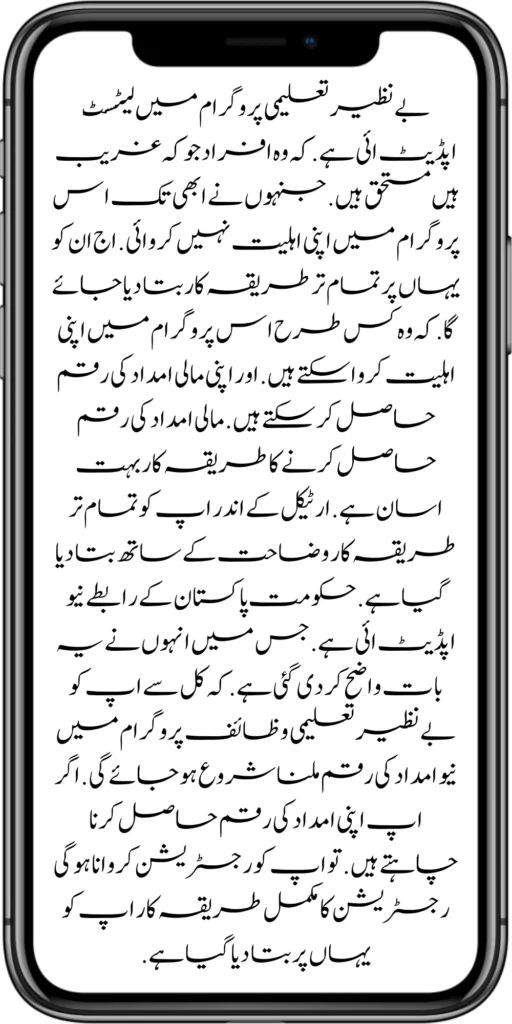 بے نظیر تعلیمی پروگرام میں لیٹسٹ
اپڈیٹ ائی ہے. کہ وہ افراد جو کہ غریب
ہیں مستحق ہیں. جنہوں نے ابھی تک اس
پروگرام میں اپنی اہلیت نہیں کروائی. اج ان کو
یہاں پر تمام تر طریقہ کار بتا دیا جائے
گا. کہ وہ کس طرح اس پروگرام میں اپنی
اہلیت کروا سکتے ہیں. اور اپنی مالی امداد کی رقم
حاصل کر سکتے ہیں. مالی امداد کی رقم
حاصل کرنے کا طریقہ کار بہت
اسان ہے. ارٹیکل کے اندر اپ کو تمام تر
طریقہ کار وضاحت کے ساتھ بتا دیا
گیا ہے. حکومت پاکستان کے رابطے نیو
اپڈیٹ ائی ہے. جس میں انہوں نے یہ
بات واضح کر دی گئی ہے. کہ کل سے اپ کو
بے نظیر تعلیمی وظائف پروگرام میں
نیو امداد کی رقم ملنا شروع ہو جائے گی. اگر
اپ اپنی امداد کی رقم حاصل کرنا
چاہتے ہیں. تو اپ کو رجسٹریشن کروانا ہوگی
رجسٹریشن کا مکمل طریقہ کار اپ کو
یہاں پر بتا دیا گیا ہے.